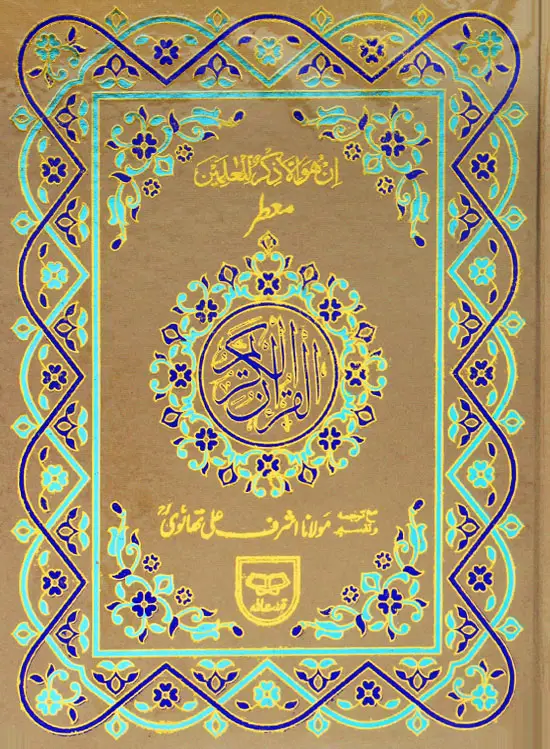 اِنْ هُوَ اِلَّا ذِكْرٌ لِّلْعٰلَمِیْنَ
معطر
القرآن الكريم
مع ترجمہ وتفسیر مولانا اشرف علی تھانویؒ
قدرت اللہ